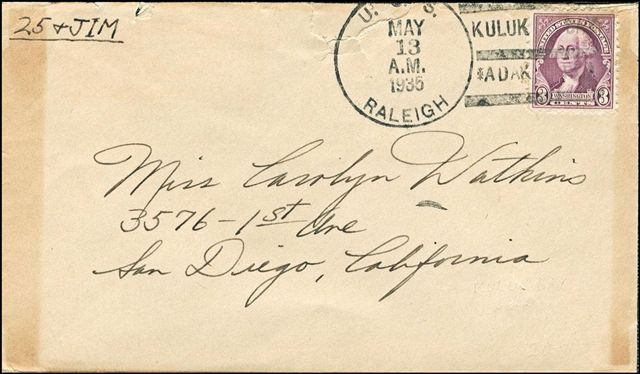 25 + JIM
U. S. S.
MAY
13
A.M.
1935
RALEIGH
KULUK
ADAK
3 WASHINGTON 3
Miss Carolyn Watkins
3576 - 1st Ave
San Diego, California